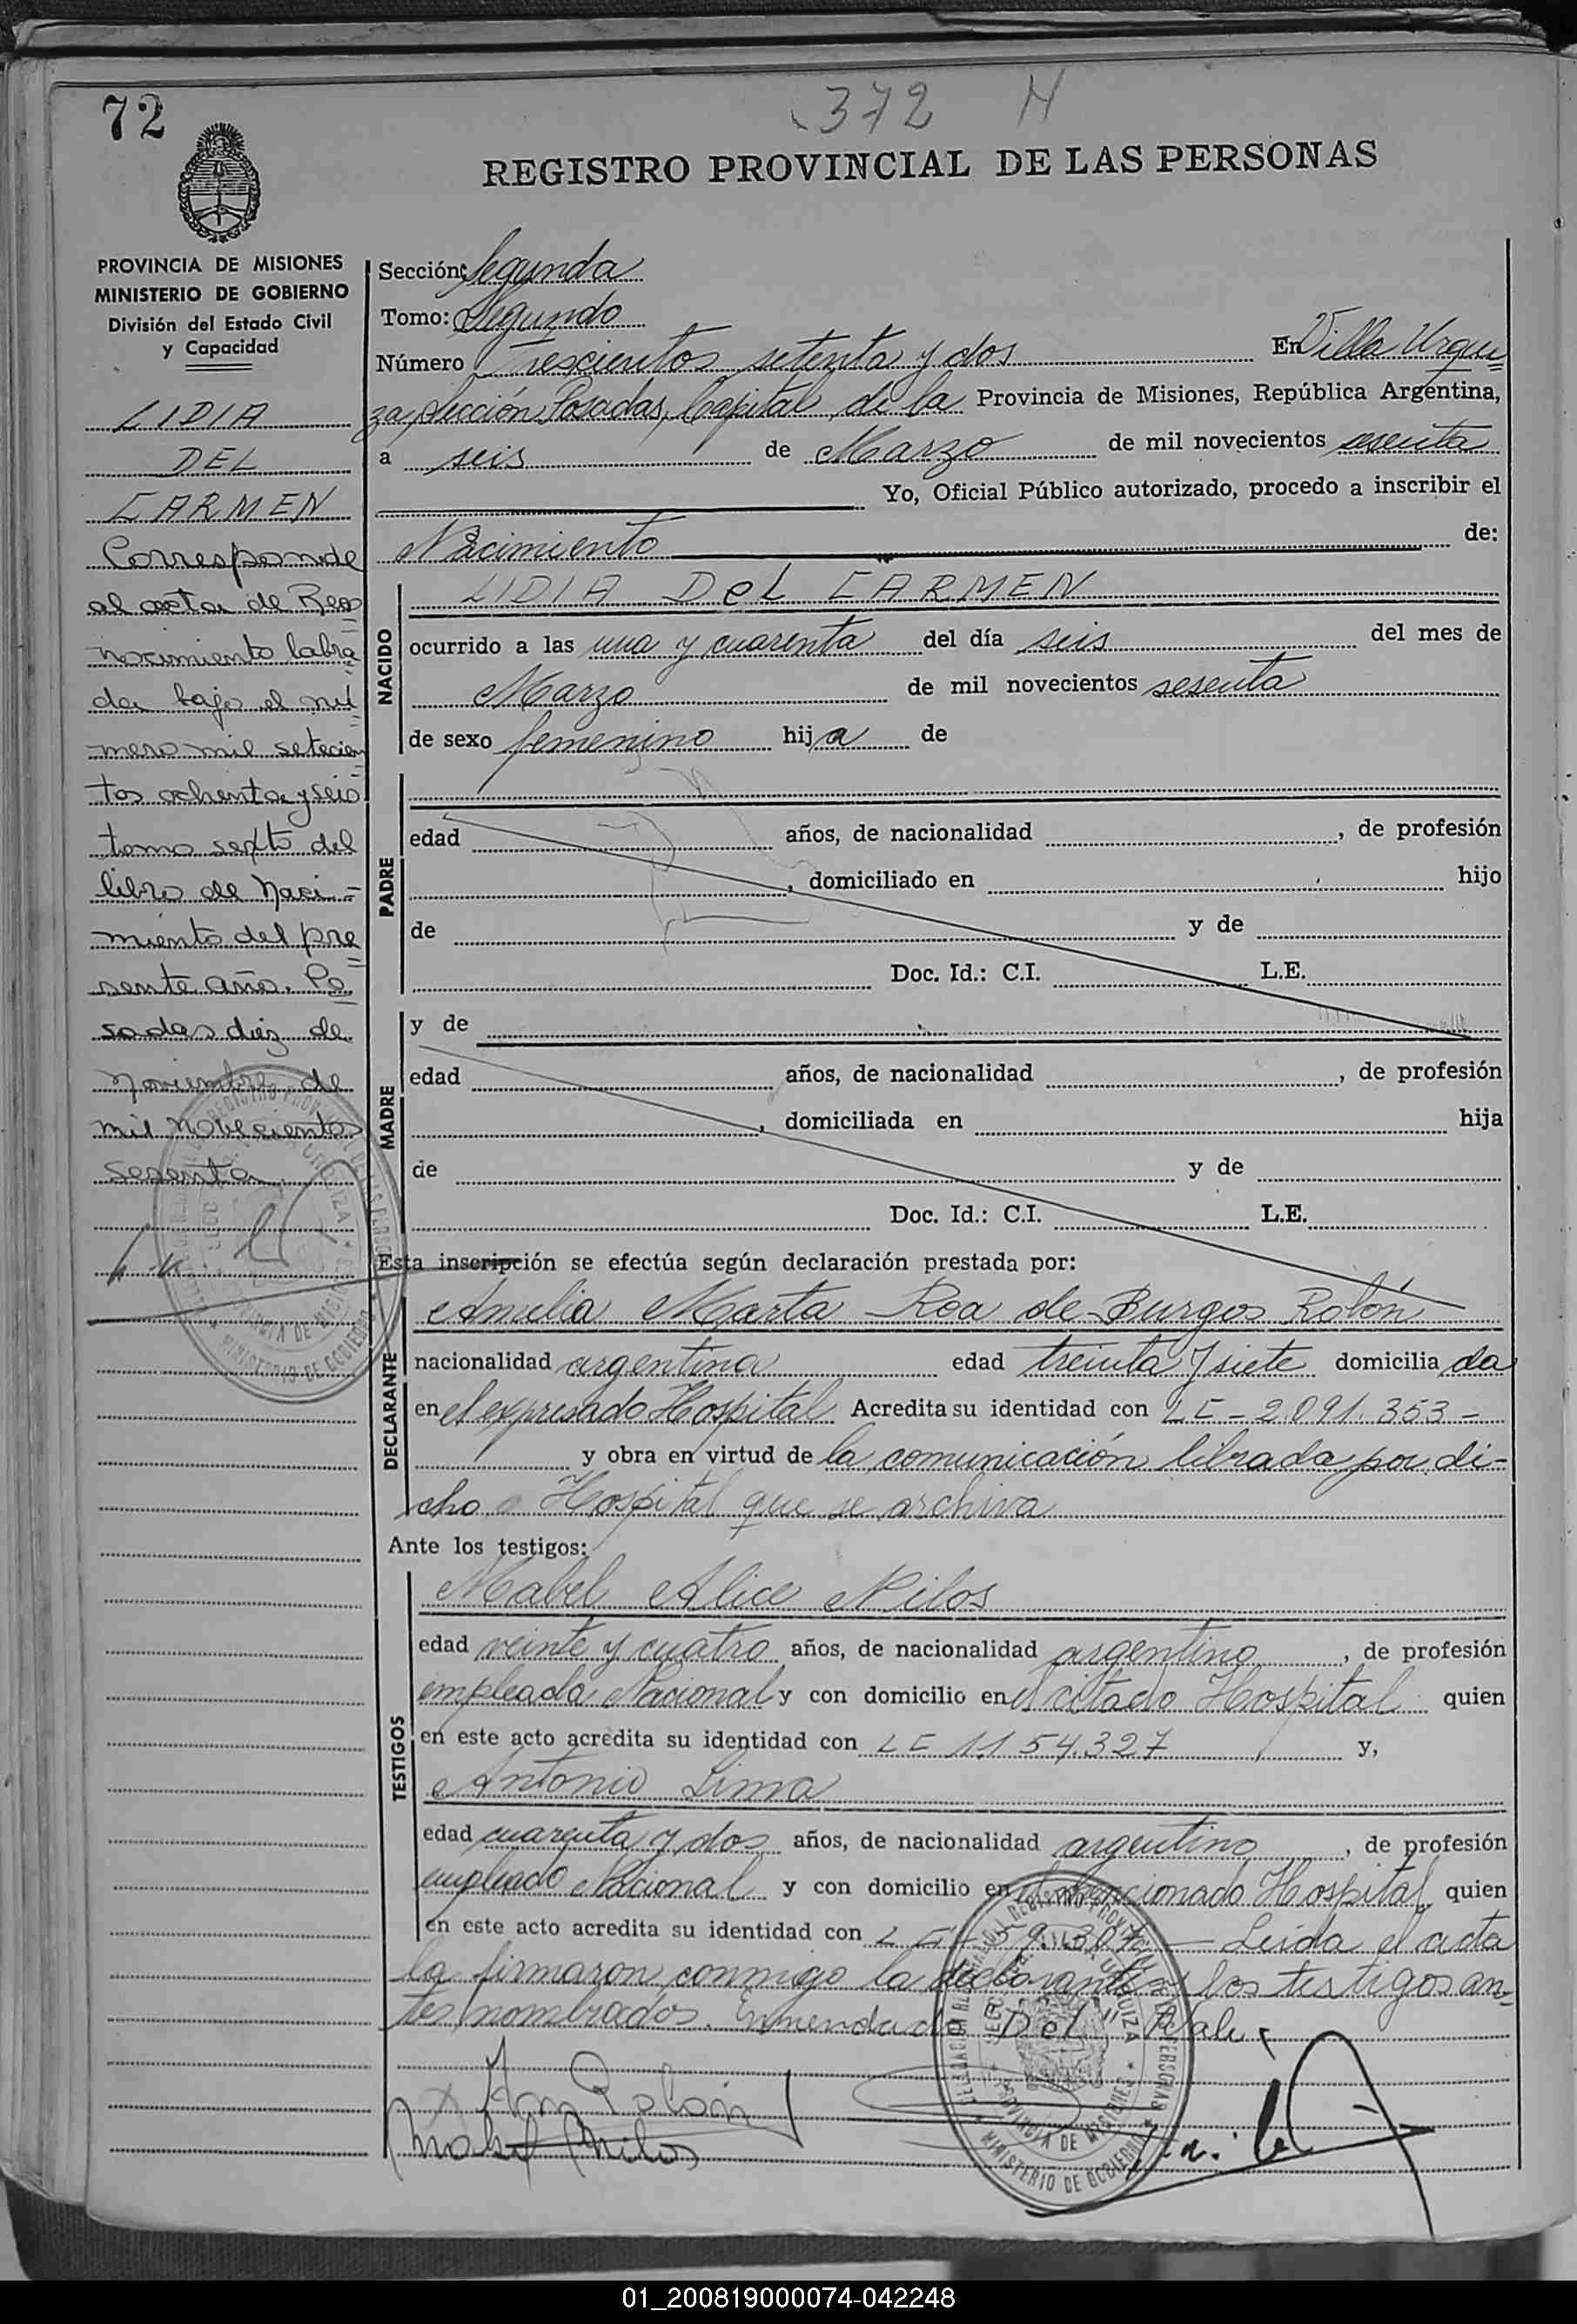 72
372 N
REGISTRO PROVINCIAL DE LAS PERSONAS
PROVINCIA DE MISIONES
MINISTERIO DE GOBIERNO
División del Estado Civil
y Capacidad
LIDIA
DEL
CARMEN
Corresponde
al acta de Reco
nocimiento labra
da bajo el nú
mero mil setecien
tos ochenta y seis
tomo sexto del
libro de Naci-
miento del pre
sente año. Po
sadas diez de
Noviembre de
mil novecientos
sesenta.
Sección: Segunda
Tomo: Segundo
Número Trescientos setenta y dos En Villa Urqui
za, sección Posadas, Capital de la Provincia de Misiones, República Argentina,
a seis de Marzo de mil novecientos sesenta
Yo, Oficial Público autorizado, procedo a inscribir el
Nacimiento de:
NACIDO
LIDIA DeL CARMEN
ocurrido a las una y cuarenta del día seis del mes de
Marzo de mil novecientos sesenta
de sexo femenino hija de
PADRE
edad años, de nacionalidad , de profesión
, domiciliado en hijo
de y de
Doc. Id.: C.I. L.E.
MADRE
y de
edad años, de nacionalidad , de profesión
, domiciliada en hija
de y de
Doc. Id.: C.I. L.E.
Esta inscripción se efectúa según declaración prestada por:
DECLARANTE
Amelia Marta Roa de Burgos Rolón
nacionalidad argentina edad treinta y siete domicilia da
en el expresado Hospital Acredita su identidad con LC - 2.091.353 -
y obra en virtud de la comunicación librada por di-
cho Hospital que se archiva
Ante los testigos:
TESTIGOS
Mabel Alice Milos
edad veinte y cuatro años, de nacionalidad argentino, de profesión
empleada Nacional y con domicilio en el citado Hospital quien
en este acto acredita su identidad con LC 1154.327 y,
Antonio Lima
edad cuarenta y dos años, de nacionalidad argentino, de profesión
empleado Nacional y con domicilio en el mencionado Hospital quien
en este acto acredita su identidad con Leida el acta
la firmaron conmigo la declarante y los testigos an-
tes nombrados. Enmendado "Del" Vale
Rolón
Mabel Milos
MINISTERIO DE GOBIERNO
PROVINCIA DE MISIONES
01_200819000074-042248